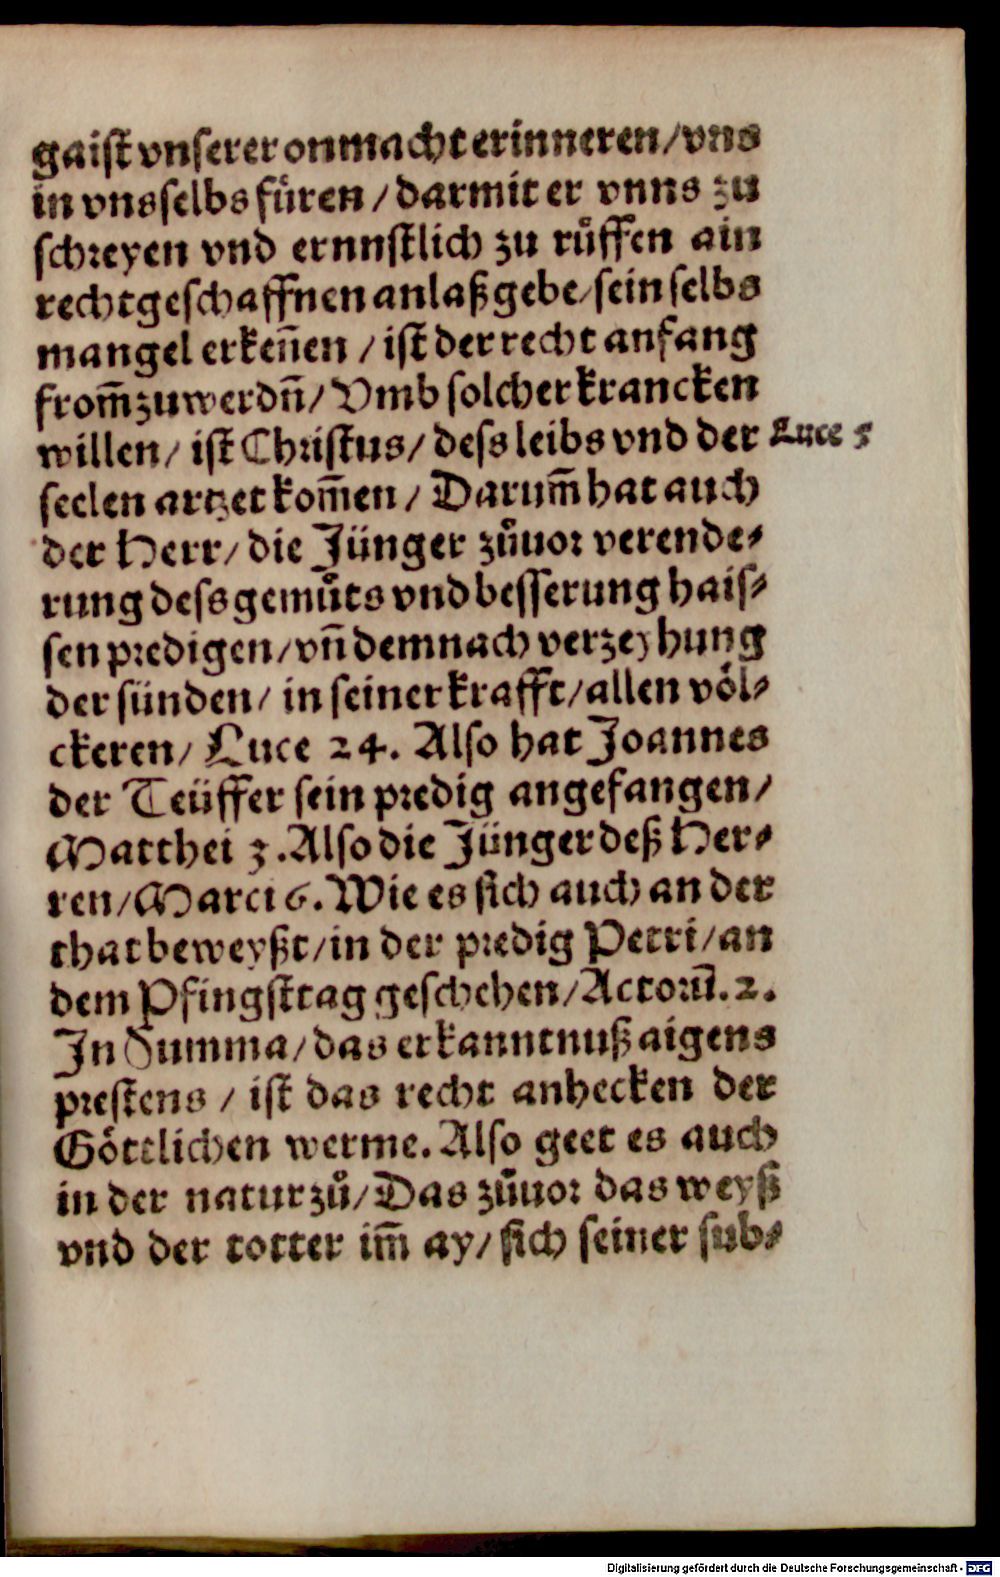 gaist vnserer onmacht erinneren/vns
in vns selbs füren/darmit er vnns zu
schreyen vnd ernnstlich zu růffen ain
rechtgeschaffnen anlaß gebe/sein selbs
mangel erkeñen/ist der recht anfang
from̄ zu werdn̄/Vmb solcher krancken
willen/ist Christus/dess leibs vnd der Luce 5
seelen artzet kom̄en/Darum̄ hat auch
der Herr/die Jünger zůuor verende⸗
rung dess gemůts vnd besserung hais⸗
sen predigen/vn̄ demnach verzeyhung
der sünden/in seiner krafft/allen völ⸗
ckeren/Luce 24. Also hat Joannes
der Teüffer sein predig angefangen/
Matthei 3. Also die Jünger deß Her⸗
ren/Marci 6. Wie es sich auch an der
that beweyßt/in der predig Petri/an
dem Pfingsttag geschehen/Actorum̄.2.
In Summa/das erkanntnuß aigens
prestens/ist das recht anhecken der
Göttlichen werme. Also geet es auch
in der natur zů/Das zůuor das weyß
vnd der totter im̄ ay/sich seiner sub⸗
Digitalisierung gefördert durch die Deutsche Forschungsgemeinschaft - DFG